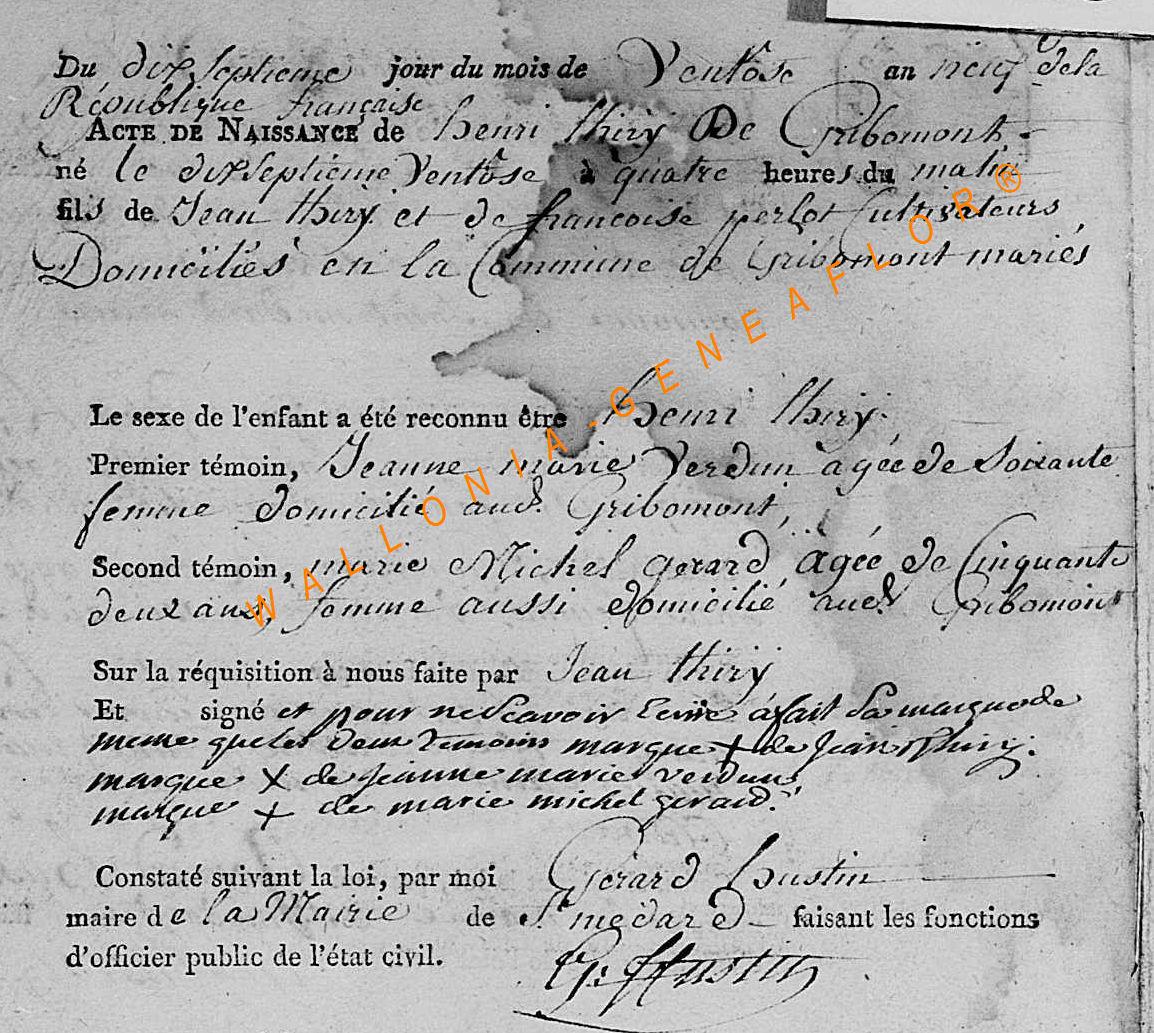 Du dixseptieme jour du mois de Ventôse an neuf de la
République française
ACTE DE NAISSANCE de henri thiry De Gribomont
né le dixseptieme Ventôse à quatre heures du matin
fils de Jean thiry et de francoise perlot Cultivateurs
Domiciliés en la Commune de Gribomont mariés
Le sexe de l'enfant a été reconnu être henri thiry.
Premier témoin, Jeanne marie Verdun agée de Soixante
femme domicilié aud. Gribomont,
Second témoin, marie Michel gerard, agée de Cinquante
deux ans, femme aussi domicilié aud. Gribomont
Sur la réquisition à nous faite par Jean thiry
Et signé et pour ne Scavoir Ecrire à fait Sa marque de
meme que les deux Temoins marque + de Jean thiry.
marque X de jeanne marie verdun
marque + de marie michel gerard.
Constaté suivant la loi, par moi Gérard hustin
maire de la Mairie de St medard faisant les fonctions
d'officier public de l'état civil. G: Hustin
WALLONIA-GENEAFLOR®